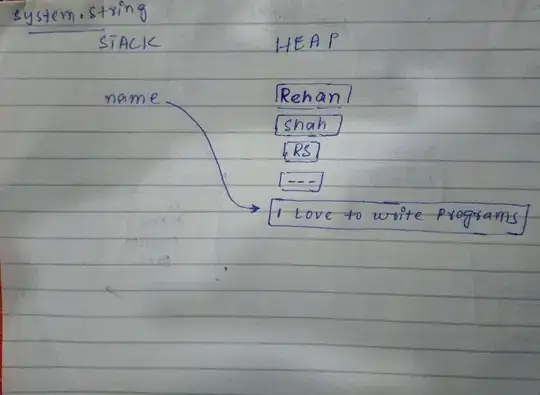 system.string
STACK HEAP
name Rehan
shah
RS
---
I Love to write programs